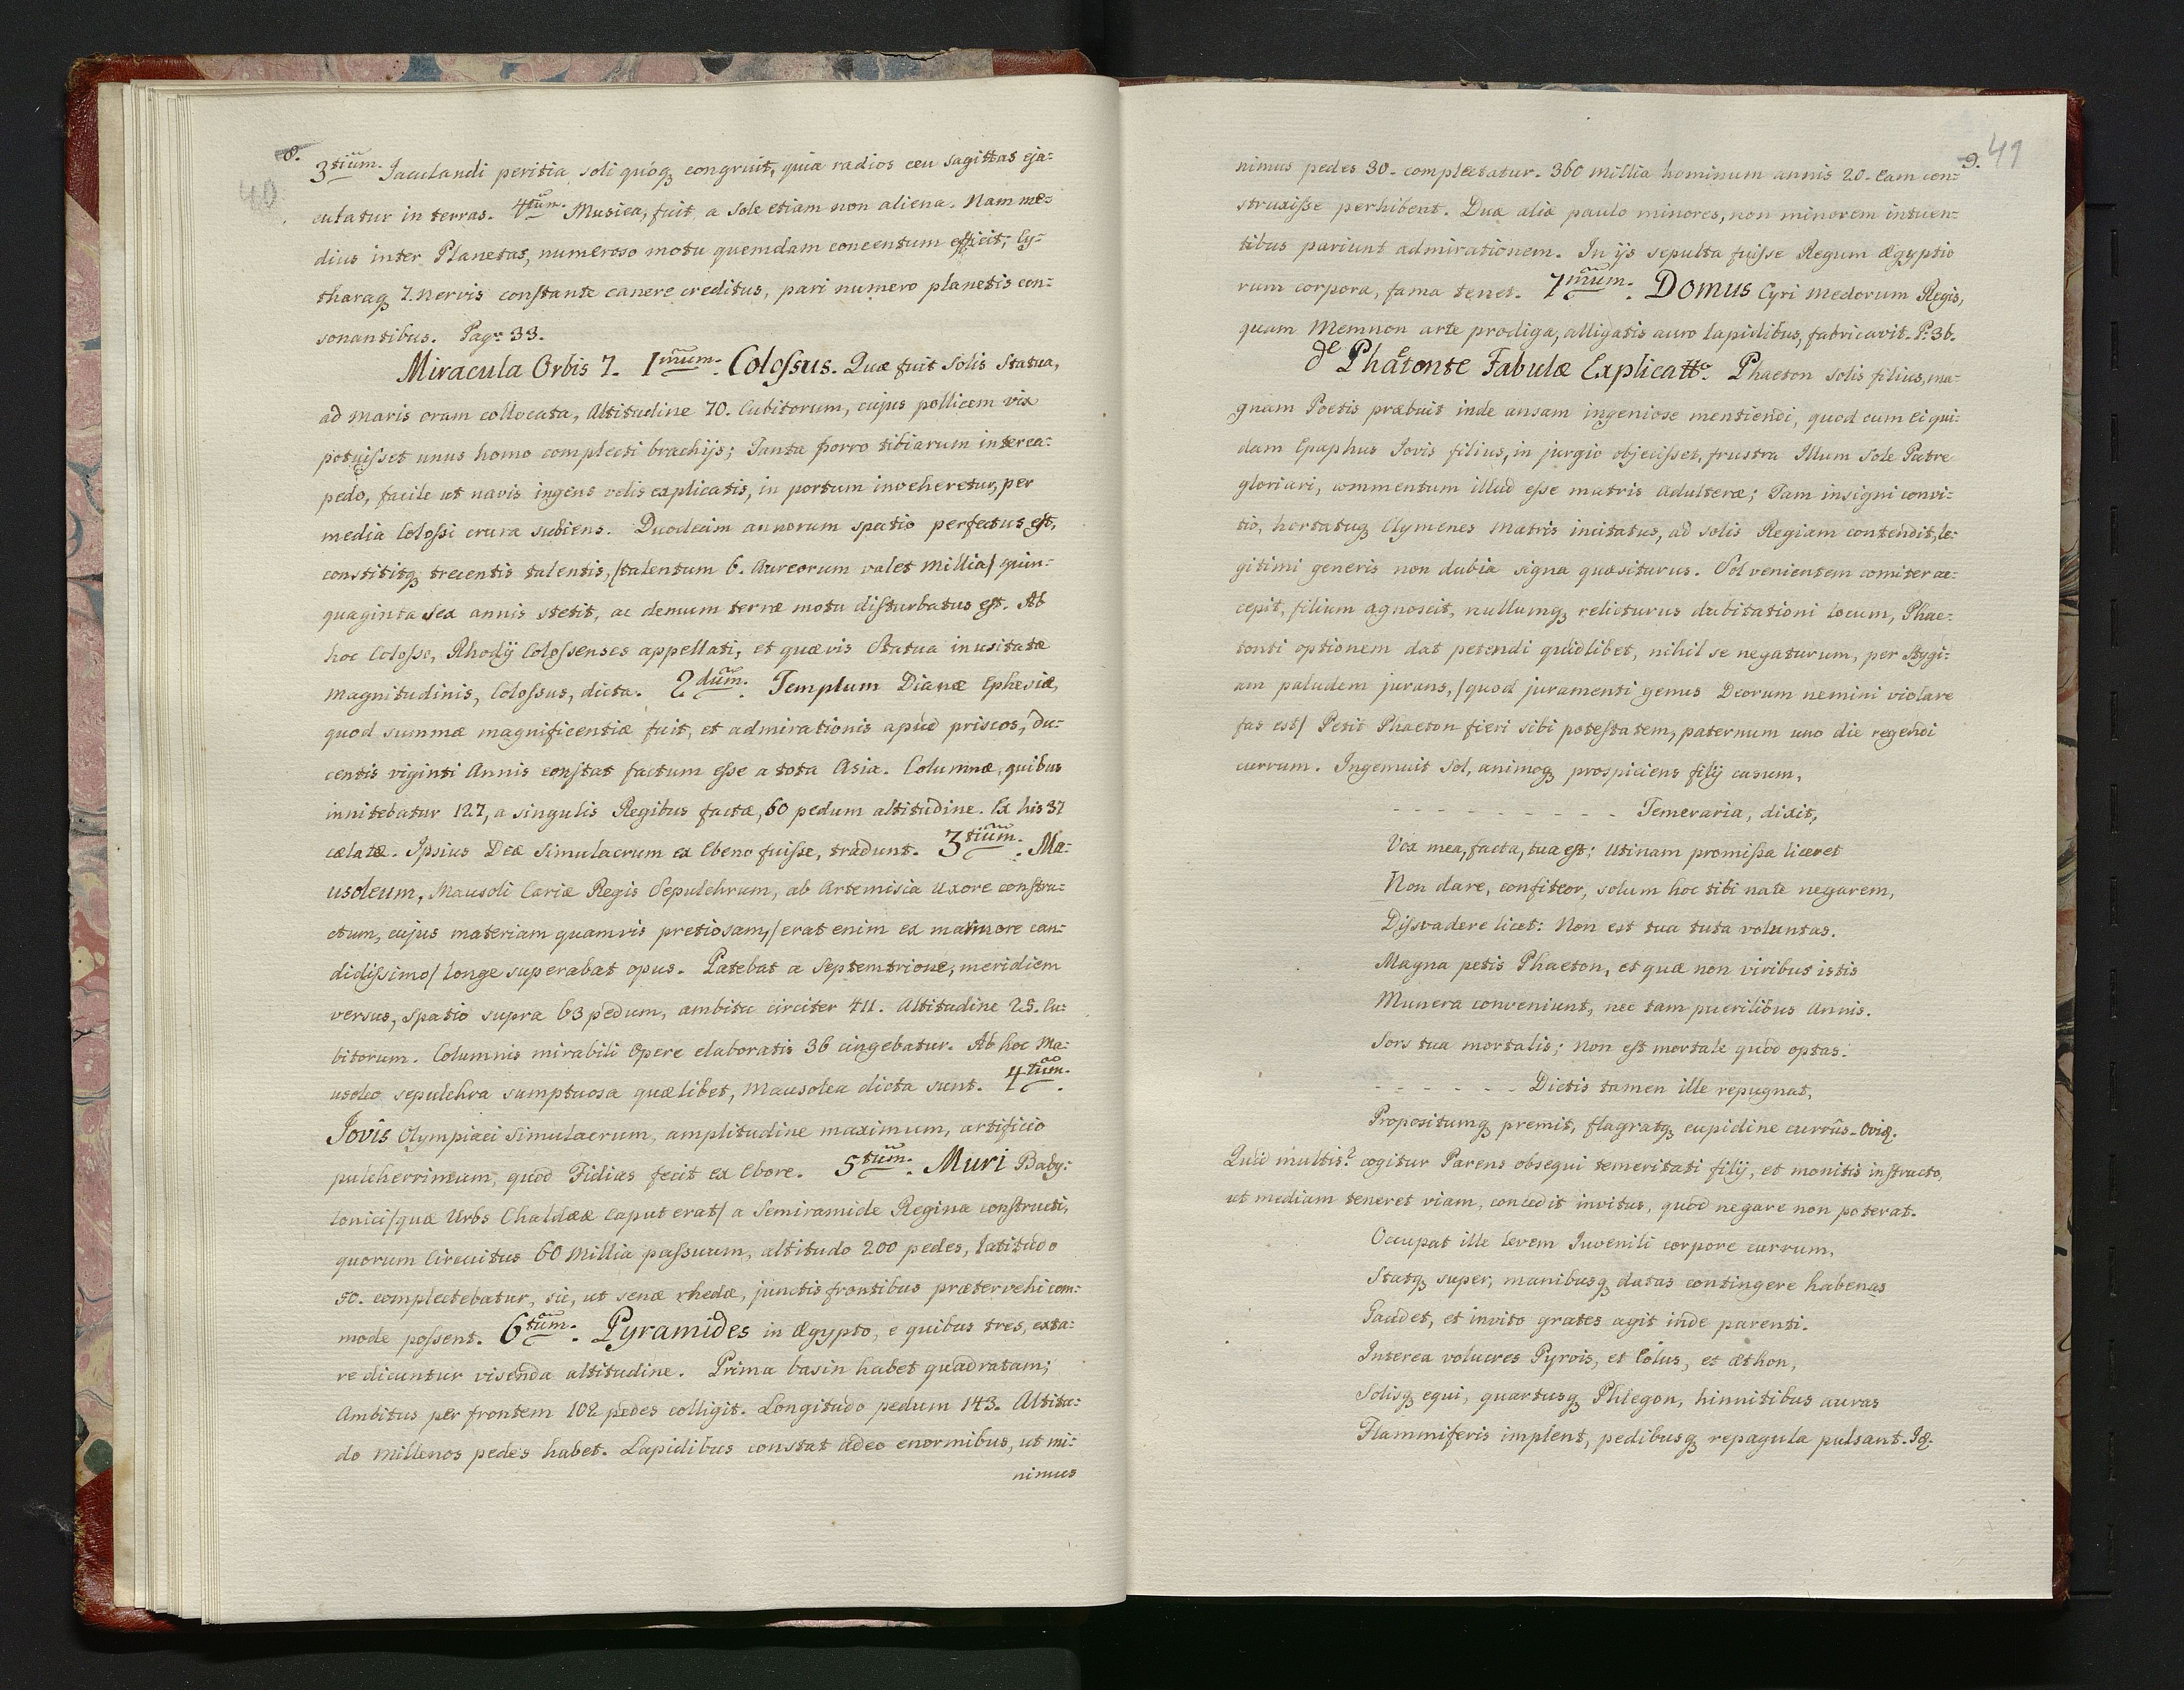 8.
40
3tium. Iaculandi peritia soli quóq congruit, quia radios ceu sagittas eja:
culatur in terras. 4tum. Musica, fuit, a Sole etiam non aliena. Nam me:
dius inter Planetas, numeroso motu quemdam concentum efficit, Cy:
tharaq 7. nervis constante canere creditus, pari numero planetis con:
sonantibus. Pag: 33.
Miracula Orbis 7. 1mum. Colossus. Quæ fuit Solis Statua,
ad maris oram collocata, Altitudine 70. Cubitorum, cujus pollicem vix
potuisset unus homo complecti brachijs; Tanta porro tibiarum interca:
pedo, facile ut navis ingens velis explicatis, in portum inveheretur, per
media Colossi crura subiens. Duodecim annorum spatio perfectus est,
constititq trecentis talentis, /talentum 6. Aureorum valet millia/ quin:
quaginta sex annis stetit, ac demum terræ motu disturbatus est. Ab
hoc Colosso, Rhodij Colossenses appellati, et quævis Statua inusitatæ
magnitudinis, Colossus, dicta. 2dum. Templum Dianæ Ephesiæ,
quod summæ magnificentiæ fuit, et admirationis apud priscos, du:
centis viginti Annis constat factum esse a tota Asia. Columnæ, quibus
innitebatur 127, a singulis Regibus factæ, 60 pedum altitudine. Ex his 37
cælatæ. Ipsius Deæ Simulacrum ex Ebeno fuisse, tradunt. 3tium. Ma:
usoleum, Mausoli Cariæ Regis Sepulchrum, ab Artemisia Uxore constru:
ctum, cujus materiam quamvis pretiosam, /erat enim ex marmore can:
didissimo/ longe superabat opus. Patebat a Septemtrione, meridiem
versus, spatio supra 63 pedum, ambitu circiter 411. Altitudine 25. Cu:
bitorum. Columnis mirabili Opere elaboratis 36 cingebatur. Ab hoc Ma:
usoleo sepulchra sumptuosa quælibet, Mausolea dicta sunt. 4tum.
Jovis Olympiaci Simulacrum, amplitudine maximum, artificio
pulcherrimum, quod Fidias fecit ex Ebore. 5tum. Muri Baby:
lonici /quæ Urbs Chaldææ caput erat/ a Semiramide Regina constructi,
quorum Circuitus 60 Millia passuum, altitudo 200 pedes, latitudo
50. complectebatur, sic, ut senæ rhedæ, junctis frontibus prætervehi com:
mode possent. 6tum. Pyramides in Ægypto, e quibus tres, exta:
re dicuntur visenda altitudine. Prima basin habet quadratam;
Ambitus per frontem 102 pedes colligit. Longitudo pedum 143. Altitu:
do millenos pedes habet. Lapidibus constat adeo enormibus, ut mi:
nimus
9.
41
nimus pedes 30. complectatur. 360 millia hominum annis 20. eam con:
struxisse perhibent. Duæ aliæ paulo minores, non minorem intuen:
tibus pariunt admirationem. In ijs sepulta fuisse Regum Ægyptio
rum corpora, fama tenet. 7mum. Domus Cyri Medorum Regis,
quam Memnon arte prodiga, alligatis auro lapidibus, fabricavit. P. 36.
de Phaetonte Fabulæ Explicatto. Phaeton Solis filius, ma:
gnam Poetis præbuit inde ansam ingeniose mentiendi, quod cum Ei qui:
dam Epaphus Jovis filius, in jurgio objecisset, frustra Illum Sole Patre
gloriari, commentum illud esse matris Adulteræ; Tam insigni convi:
tio, hortatuq Clymenes Matris incitatus, ad Solis Regiam contendit, le:
gitimi generis non dubia signa quæsiturus. Sol venientem comiter ac:
cepit, filium agnoscit, nullumq relicturus dubitationi locum, Phae:
tonti optionem dat petendi quidlibet, nihil se negaturum, per Stygi:
am paludem jurans, /quod juramenti genus Deorum nemini violare
fas est/ Petit Phaeton fieri sibi potestatem, paternum uno die regendi
currum. Ingemuit Sol, animoq prospiciens filij casum,
- - - - - - - - - Temeraria, dixit,
Vox mea, facta, tua est; Utinam promissa liceret
Non dare, confiteor, solum hoc tibi nate negarem,
Dissvadere licet: Non est tua tuta voluntas.
Magna petis Phaeton, et quæ non viribus istis
Munera conveniunt, nec tam puerilibus Annis.
Sors tua mortalis; Non est mortale quod optas.
- - - - - - Dictis tamen ille repugnat,
Propositumq premit, flagratq cupidine currûs. Ovid.
Quid multis? cogitur Parens obsequi temeritati filij, et monitis instructo,
ut mediam teneret viam, concedit invitus, quod negare non poterat.
Occupat ille levem Juvenili corpore currum,
Statq super, manibusq datas contingere habenas
Gaudet, et invito grates agit inde parenti.
Interea volucres Pyrois, et Eôus, et Æthon,
Solisq equi, quartusq Phlegon, hinnitibus auras
Flammiferis implent, pedibusq repagula pulsant. Id.